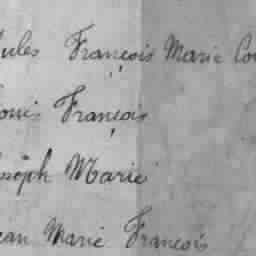 ules François Marie Cou
ouis François
oseph Marie
ean Marie François